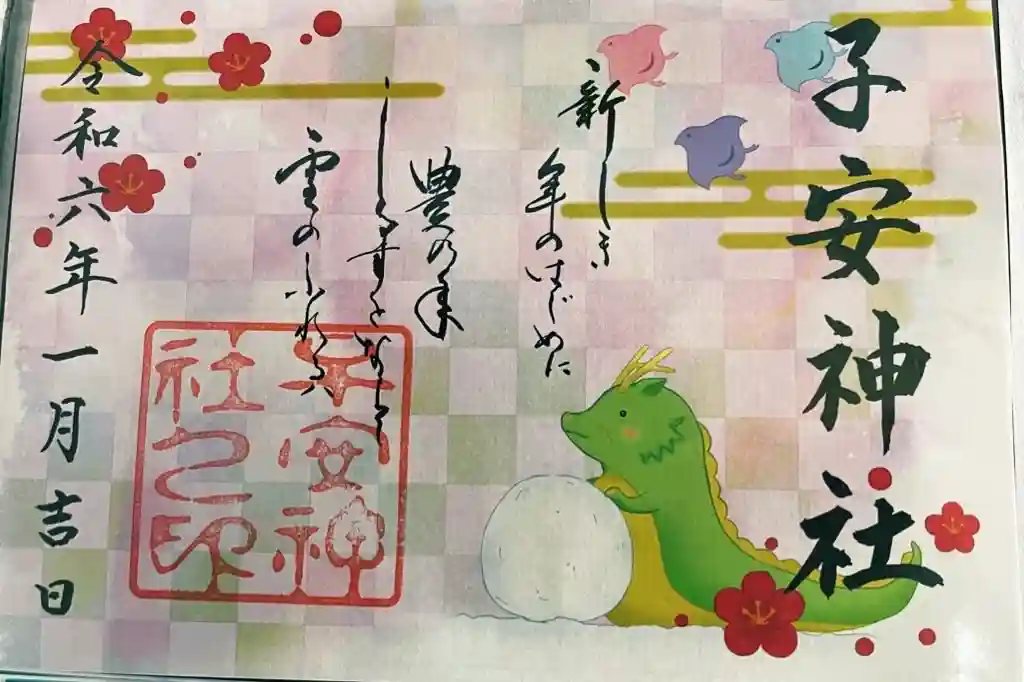 子安神社
新しき
年のはじめに
豊の年
しるすとならし
雪のふれるハ
子安神
社之印
令和六年一月吉日